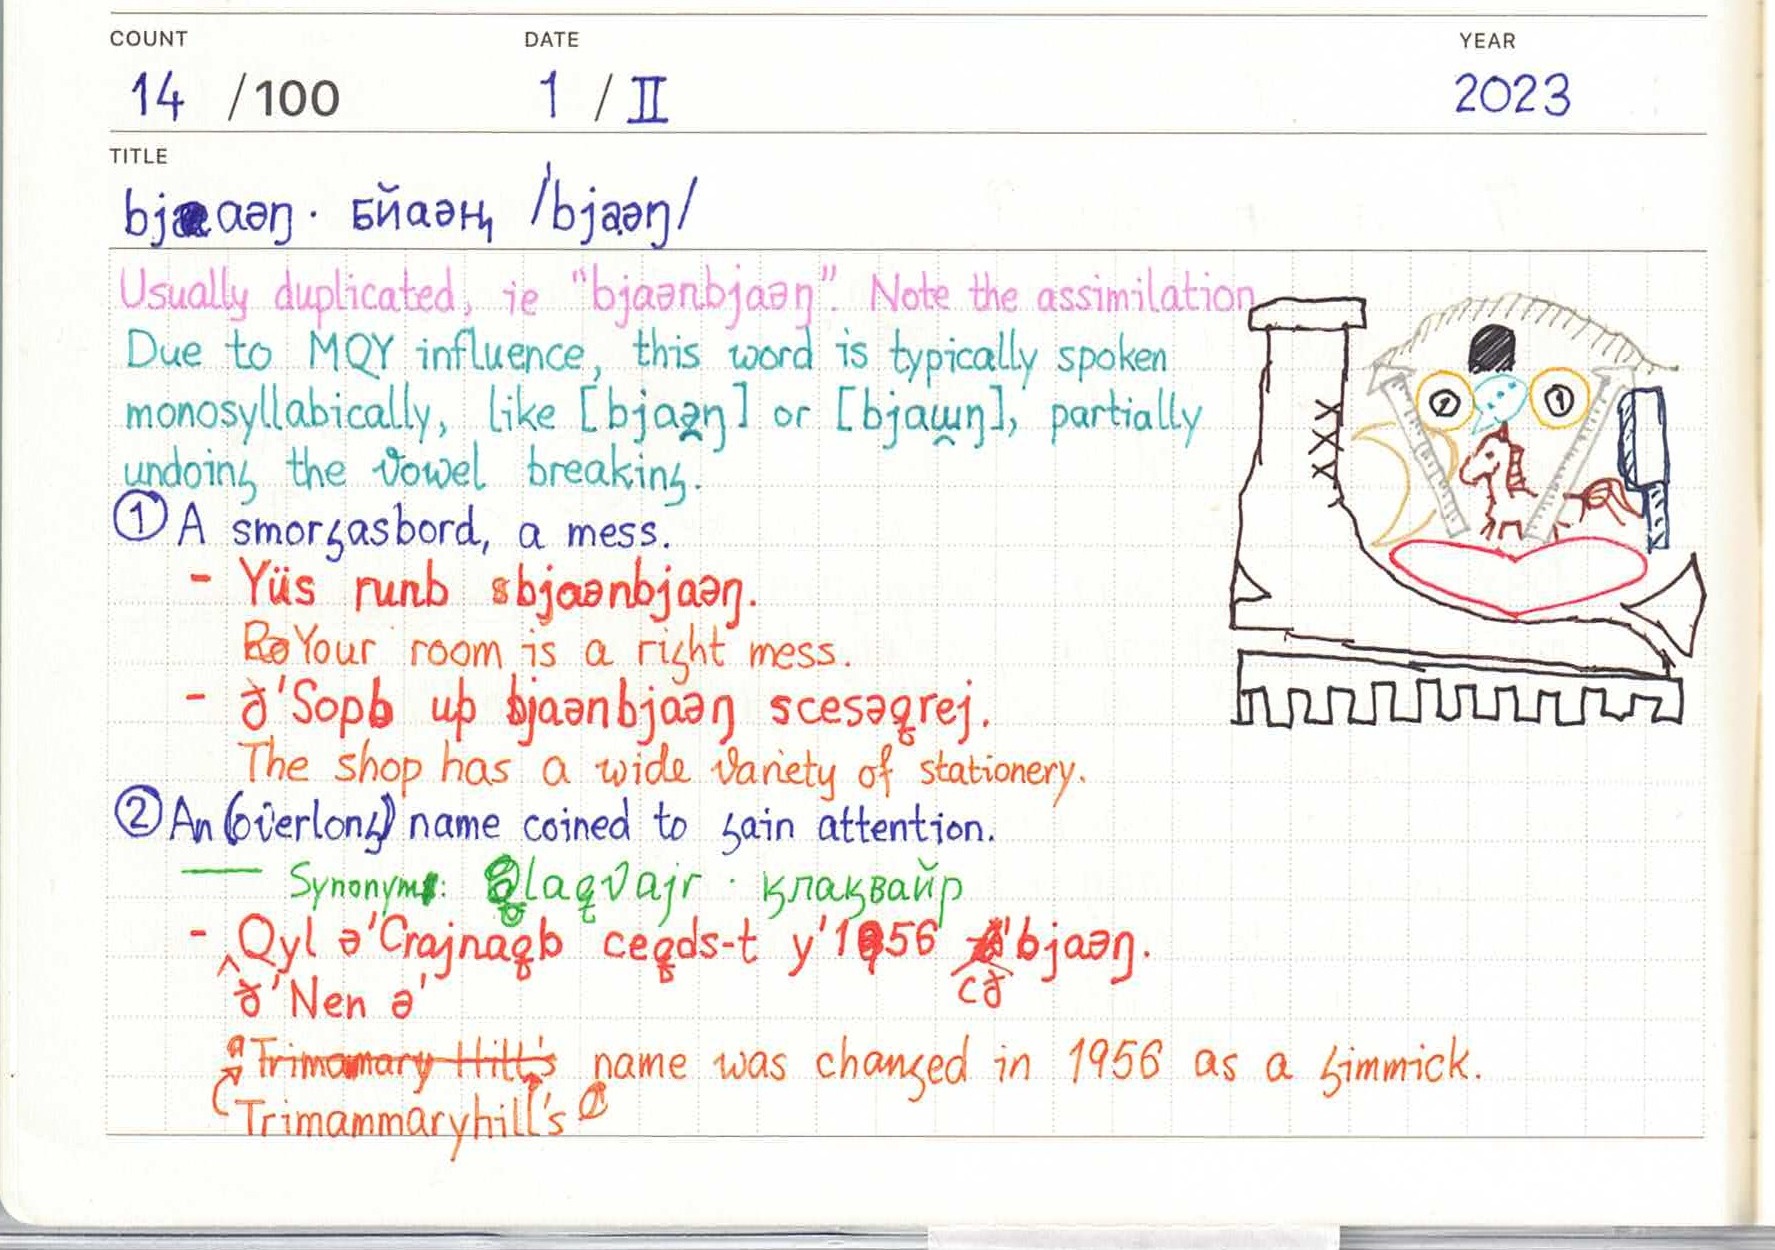 COUNT DATE YEAR
14 /100 1 / II 2023
TITLE
bjaəŋ · бйаəң /bja̯əŋ/
Usually duplicated, ie "bjaənbjaəŋ". Note the assimilation
Due to MQY influence, this word is typically spoken
monosyllabically, like [bjaə̯ŋ] or [bjaɯ̯ŋ], partially
undoing the vowel breaking.
① A smorgasbord, a mess.
- Yüs runb sbjaənbjaəŋ.
Your room is a right mess.
- ð'Sopb up bjaənbjaəŋ scesəqrej.
The shop has a wide variety of stationery.
② An (overlong) name coined to gain attention.
— Synonym: Qlaqvajr · қлақвайр
- Qyl ə'Crajnaqb ceqds-t y'1956 cð'bjaəŋ.
ð'Nen ə'
Trimamary Hill's name was changed in 1956 as a gimmick.
Trimammaryhill's
① ②